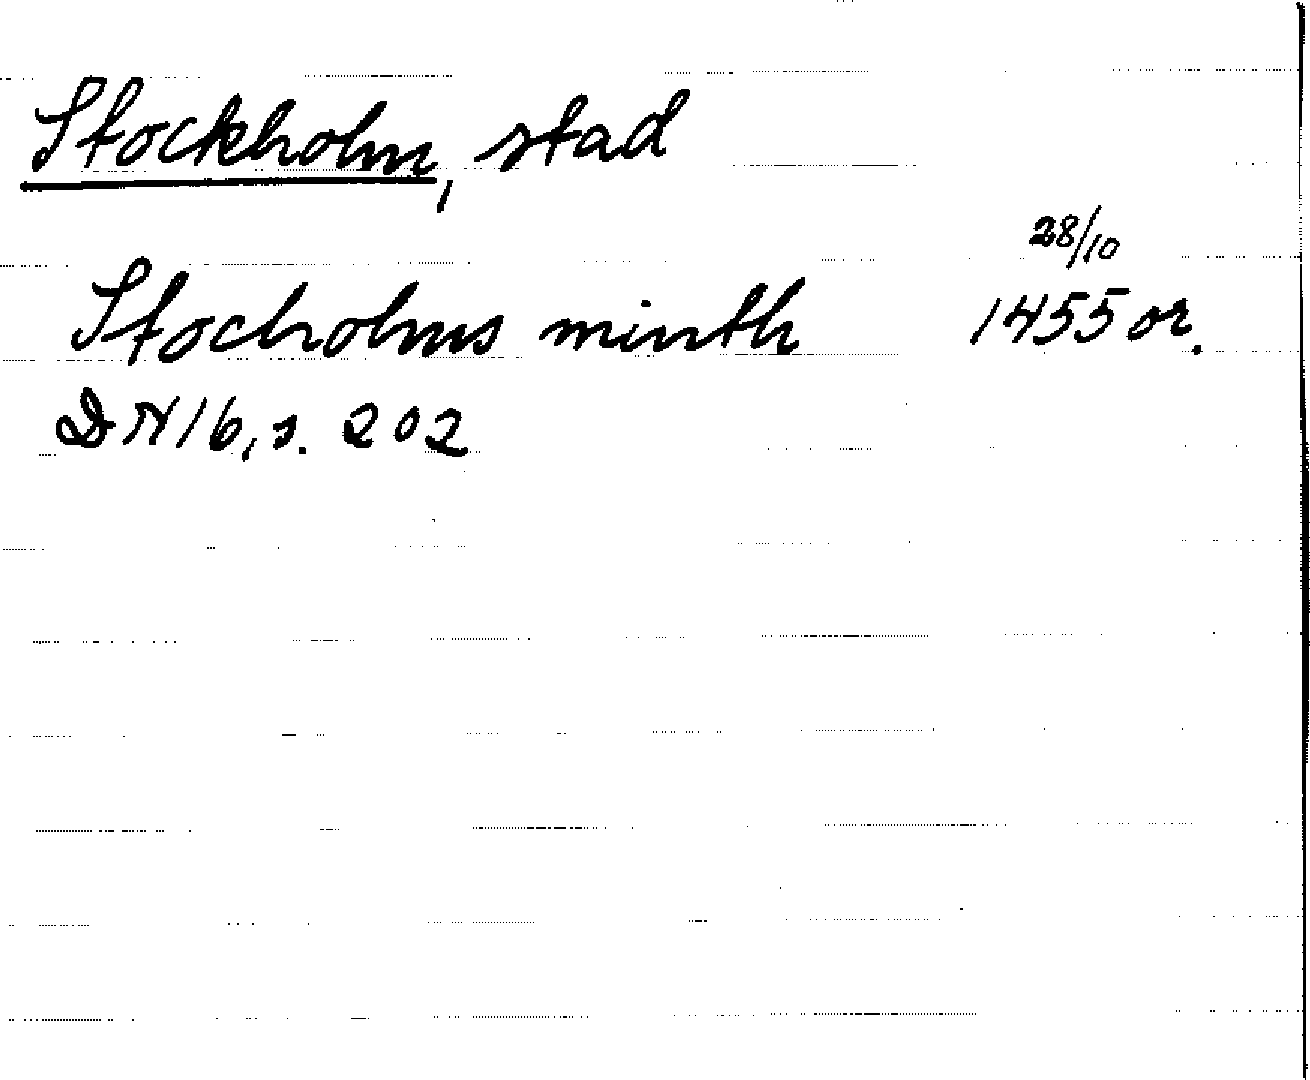 Stockholm, stad
28/10
Stocholms minth 1455 or.
DN 16, s. 202